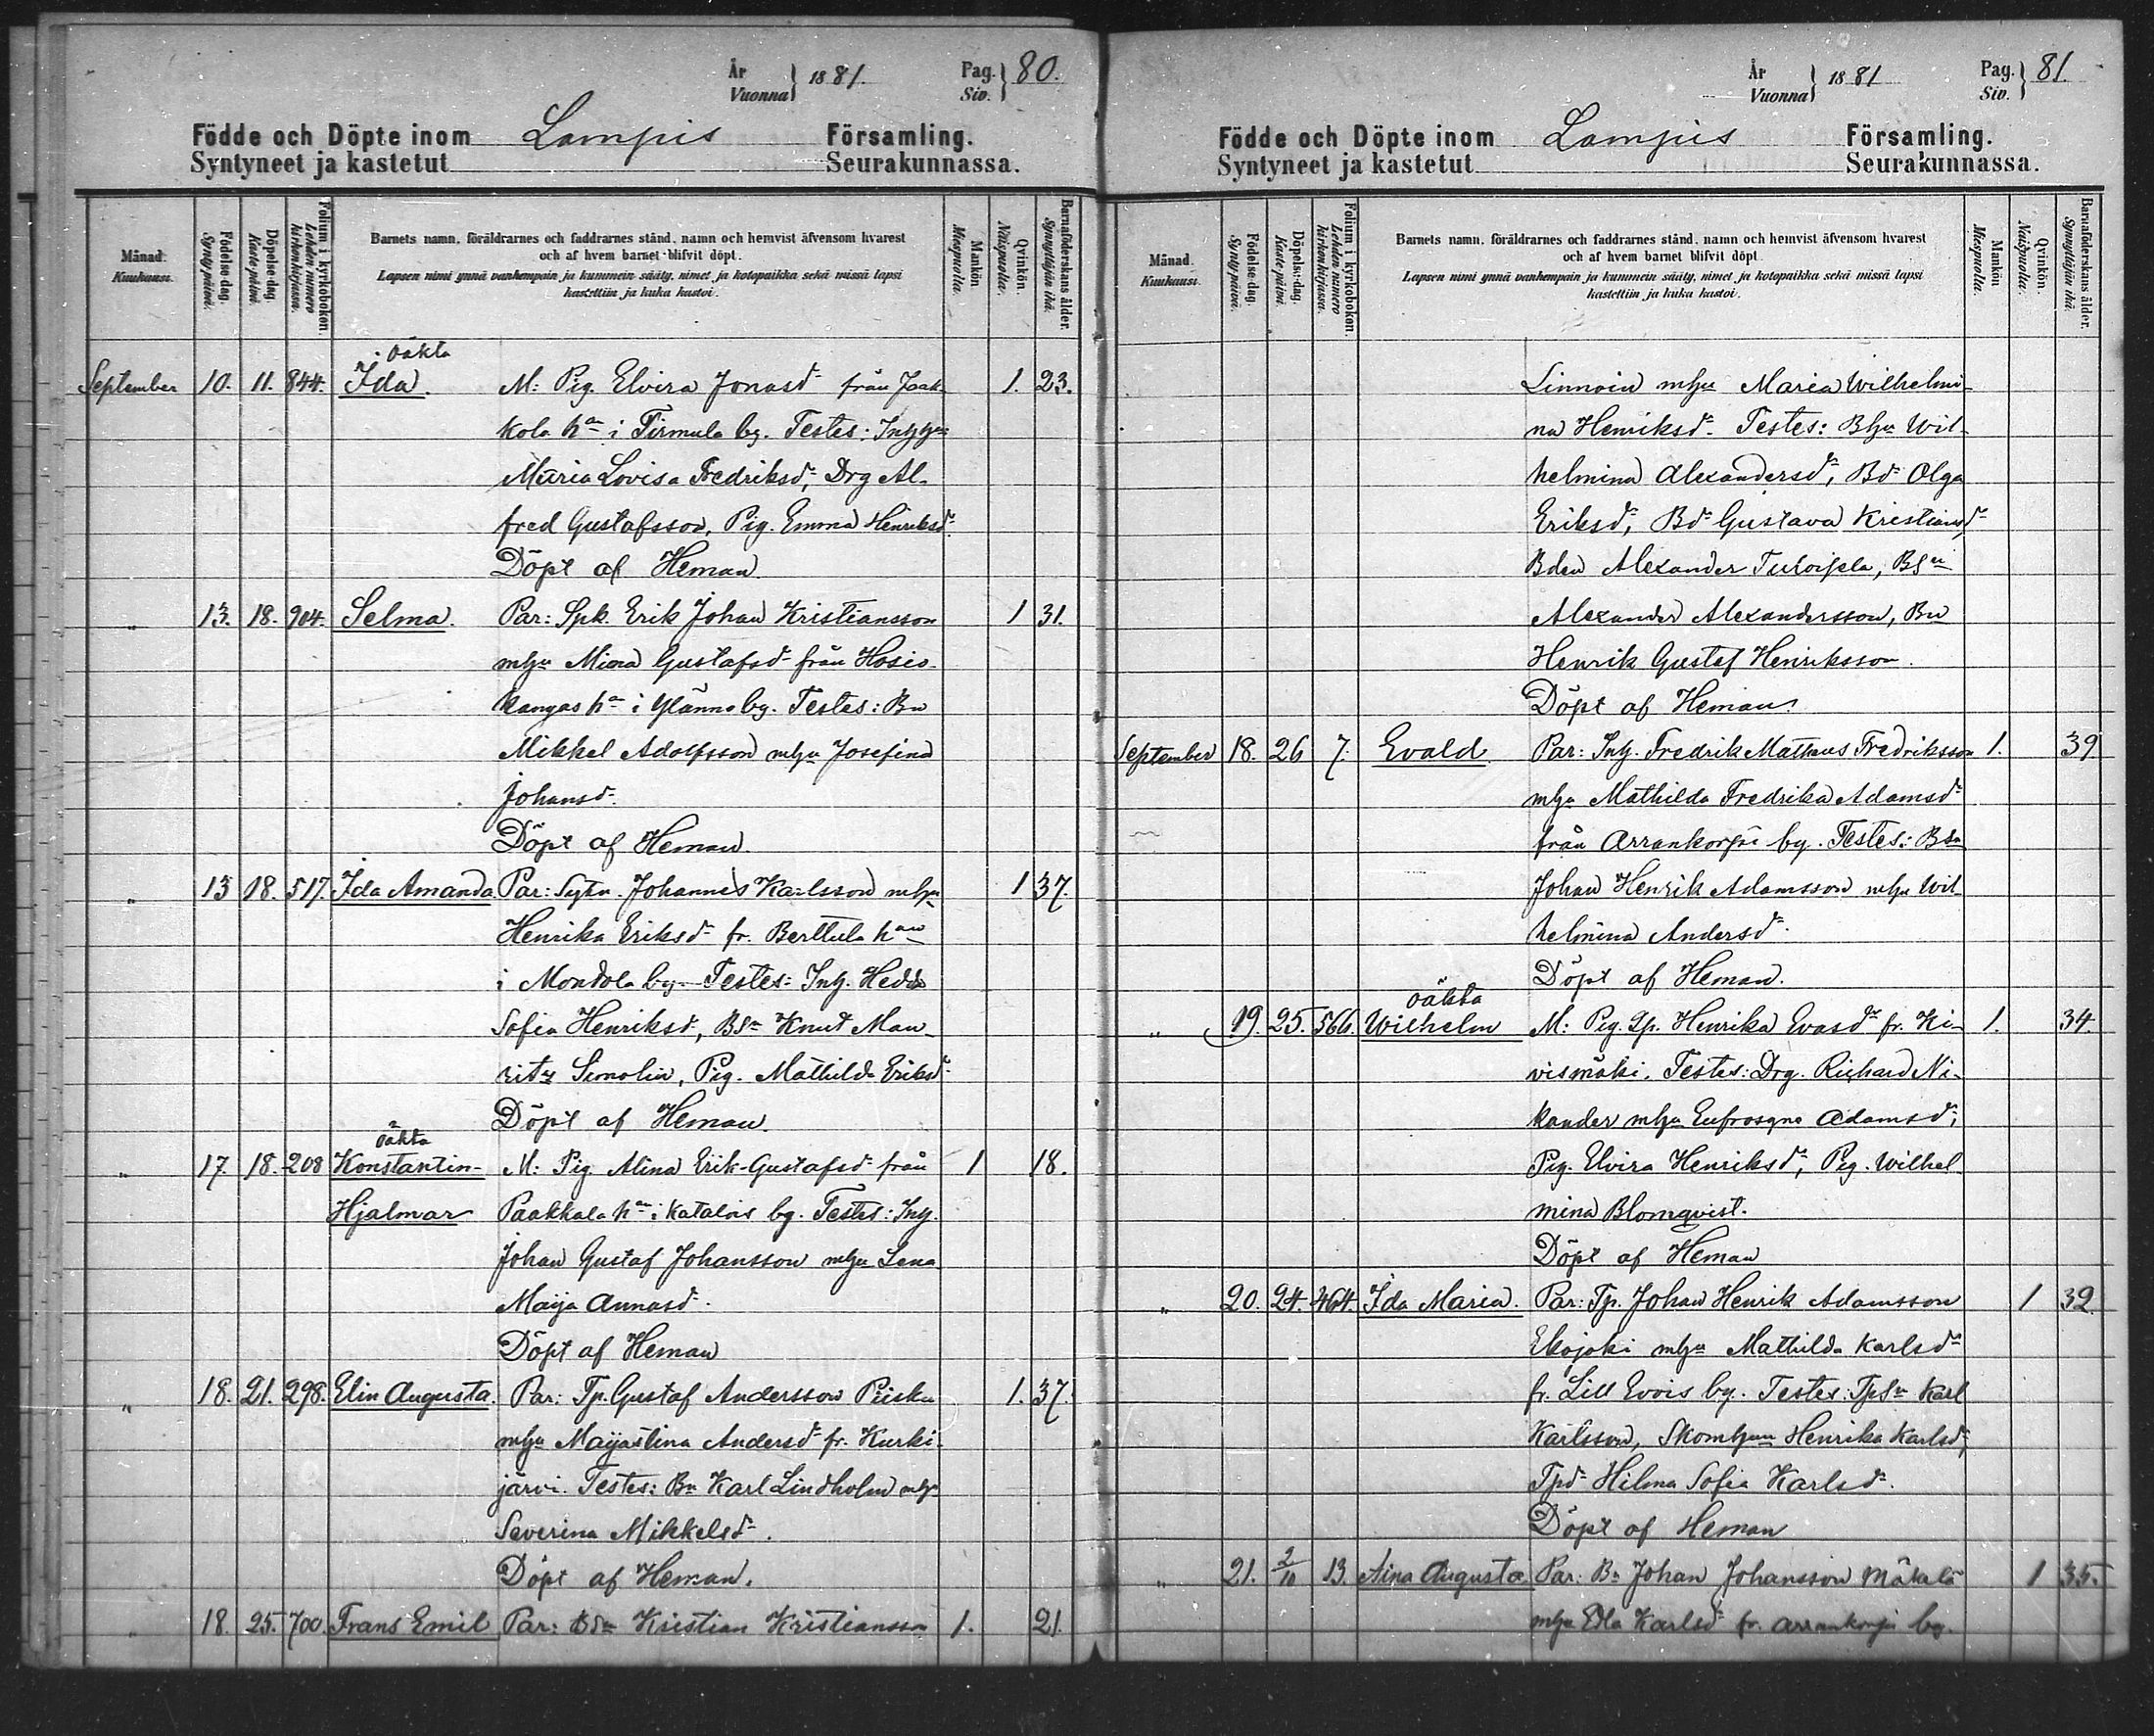 År
Vuonna } 1881. Pag.
Siv. } 80.
Födde och Döpte inom Lampis Församling.
Syntyneet ja kastetut Seurakunnassa.
Månad.
Kuukausi.
Födelse-dag.
Synty-päivä.
Döpelse-dag.
Kaste-päivä.
Folium i kyrkobokon.
Lehden numero
kirkonkirjassa.
Barnets namn, föräldrarnes och faddrarnes stånd, namn och hemvist äfvensom hvarest
och af hvem barnet blifvit döpt.
Lapsen nimi ynnä vanhempain ja kummein sääty, nimet ja kotopaikka sekä missä lapsi
kastettiin ja kuka kastoi.
Mankön
Miespuolia.
Qvinkön.
Naispuolia.
Barnaföderskans ålder.
Synnyttäjän ikä.
oäkta
September 10. 11. 844. Ida. M: Pig. Elvira Jonasd från Jaak- 1. 23.
kola hn i Tirmula by. Testes: Inhyn
Maria Lovisa Fredriksd, Drg Al-
fred Gustafsson, Pig. Emma Henriksd
Döpt af Heman
„ 13. 18. 904. Selma. Par: Spk. Erik Johan Kristiansson 1 31.
mhu Miina Gustafsd från Hosio-
kangas hn i Ylänne by. Testes: Bn
Mikkel Adolfsson mhu Josefina
Johansd.
Döpt af Heman.
„ 13 18. 517. Ida Amanda. Par: Sytn. Johannes Karlsson mhu 1 37.
Henrika Eriksd fr. Berttula hn
i Montola by. Testes: Inh. Hedda
Sofia Henriksd, BSn Knut Mau-
ritz Simolin, Pig. Mathilda Eriksd
Döpt af Heman.
oäkta
„ 17. 18. 208 Konstantin- M: Pig Alina Erik-Gustafsd från 1 18.
Hjalmar Paakkala hn i Katalois by. Testes: Inh.
Johan Gustaf Johansson mhu Lena
Maija Annasd.
Döpt af Heman
„ 18. 21. 298. Elin Augusta. Par: Tp. Gustaf Andersson Piisku 1. 37.
mhu Maijastina Andersd fr. Kurki-
järvi. Testes: Bn Karl Lindholm mhu
Severina Mikkelsd.
Döpt af Heman.
„ 18. 25. 700. Frans Emil Par: BSn Kristian Kristiansson 1. 21.
År
Vuonna } 1881 Pag.
Siv. } 81.
Födde och Döpte inom Lampis Församling.
Syntyneet ja kastetut Seurakunnassa.
Månad.
Kuukausi.
Födelse-dag.
Synty-päivä.
Döpelse-dag.
Kaste-päivä.
Folium i kyrkobokon.
Lehden numero
kirkonkirjassa.
Barnets namn, föräldrarnes och faddrarnes stånd, namn och hemvist äfvensom hvarest
och af hvem barnet blifvit döpt.
Lapsen nimi ynnä vanhempain ja kummein sääty, nimet ja kotopaikka sekä missä lapsi
kastettiin ja kuka kastoi.
Mankön
Miespuolia.
Qvinkön.
Naispuolia.
Barnaföderskans ålder.
Synnyttäjän ikä.
Linnoin mhu Maria Wilhelmi-
na Henriksd. Testes: Bhu Wil-
helmina Alexandersd, Bd Olga
Eriksd, Bd Gustava Kristiansd,
Bden Alexander, BSn
Alexander Alexandersson, Bn
Henrik Gustaf Henriksson.
Döpt af Heman.
September 18. 26 7. Evald. Par: Inh. Fredrik Matheus Fredriksson 1. 39.
mhu Mathilda Fredrika Adamsd
från Arrankorpi by. Testes: BSn
Johan Henrik Adamsson mhu Wil-
helmina Andersd.
Döpt af Heman.
oäkta
„ 19. 25. 566. Wilhelm M: Pig. Sp. Henrika Evasd fr. Ki- 1. 34.
vismäki. Testes: Drg. Richard Ni-
kander mhu Eufrosyne Adamsd,
Pig. Elvira Henriksd, Pig. Wilhel-
mina Blomqvist.
Döpt af Heman
„ 20. 24. 464. Ida Maria. Par: Tp. Johan Henrik Adamsson 1 32.
Ekojoki mhu Mathilda Karlsd
fr. Lill Evois by. Testes: TpSn Karl
Karlsson, Skomhun Henrika Karlsd,
Tpd Hilma Sofia Karlsd.
Döpt af Heman
„ 21. 2/10 13. Aina Augusta Par: Bn Johan Johansson Mäkelä 1 35.
mhu Edla Karlsd fr. Arrankorpi by.